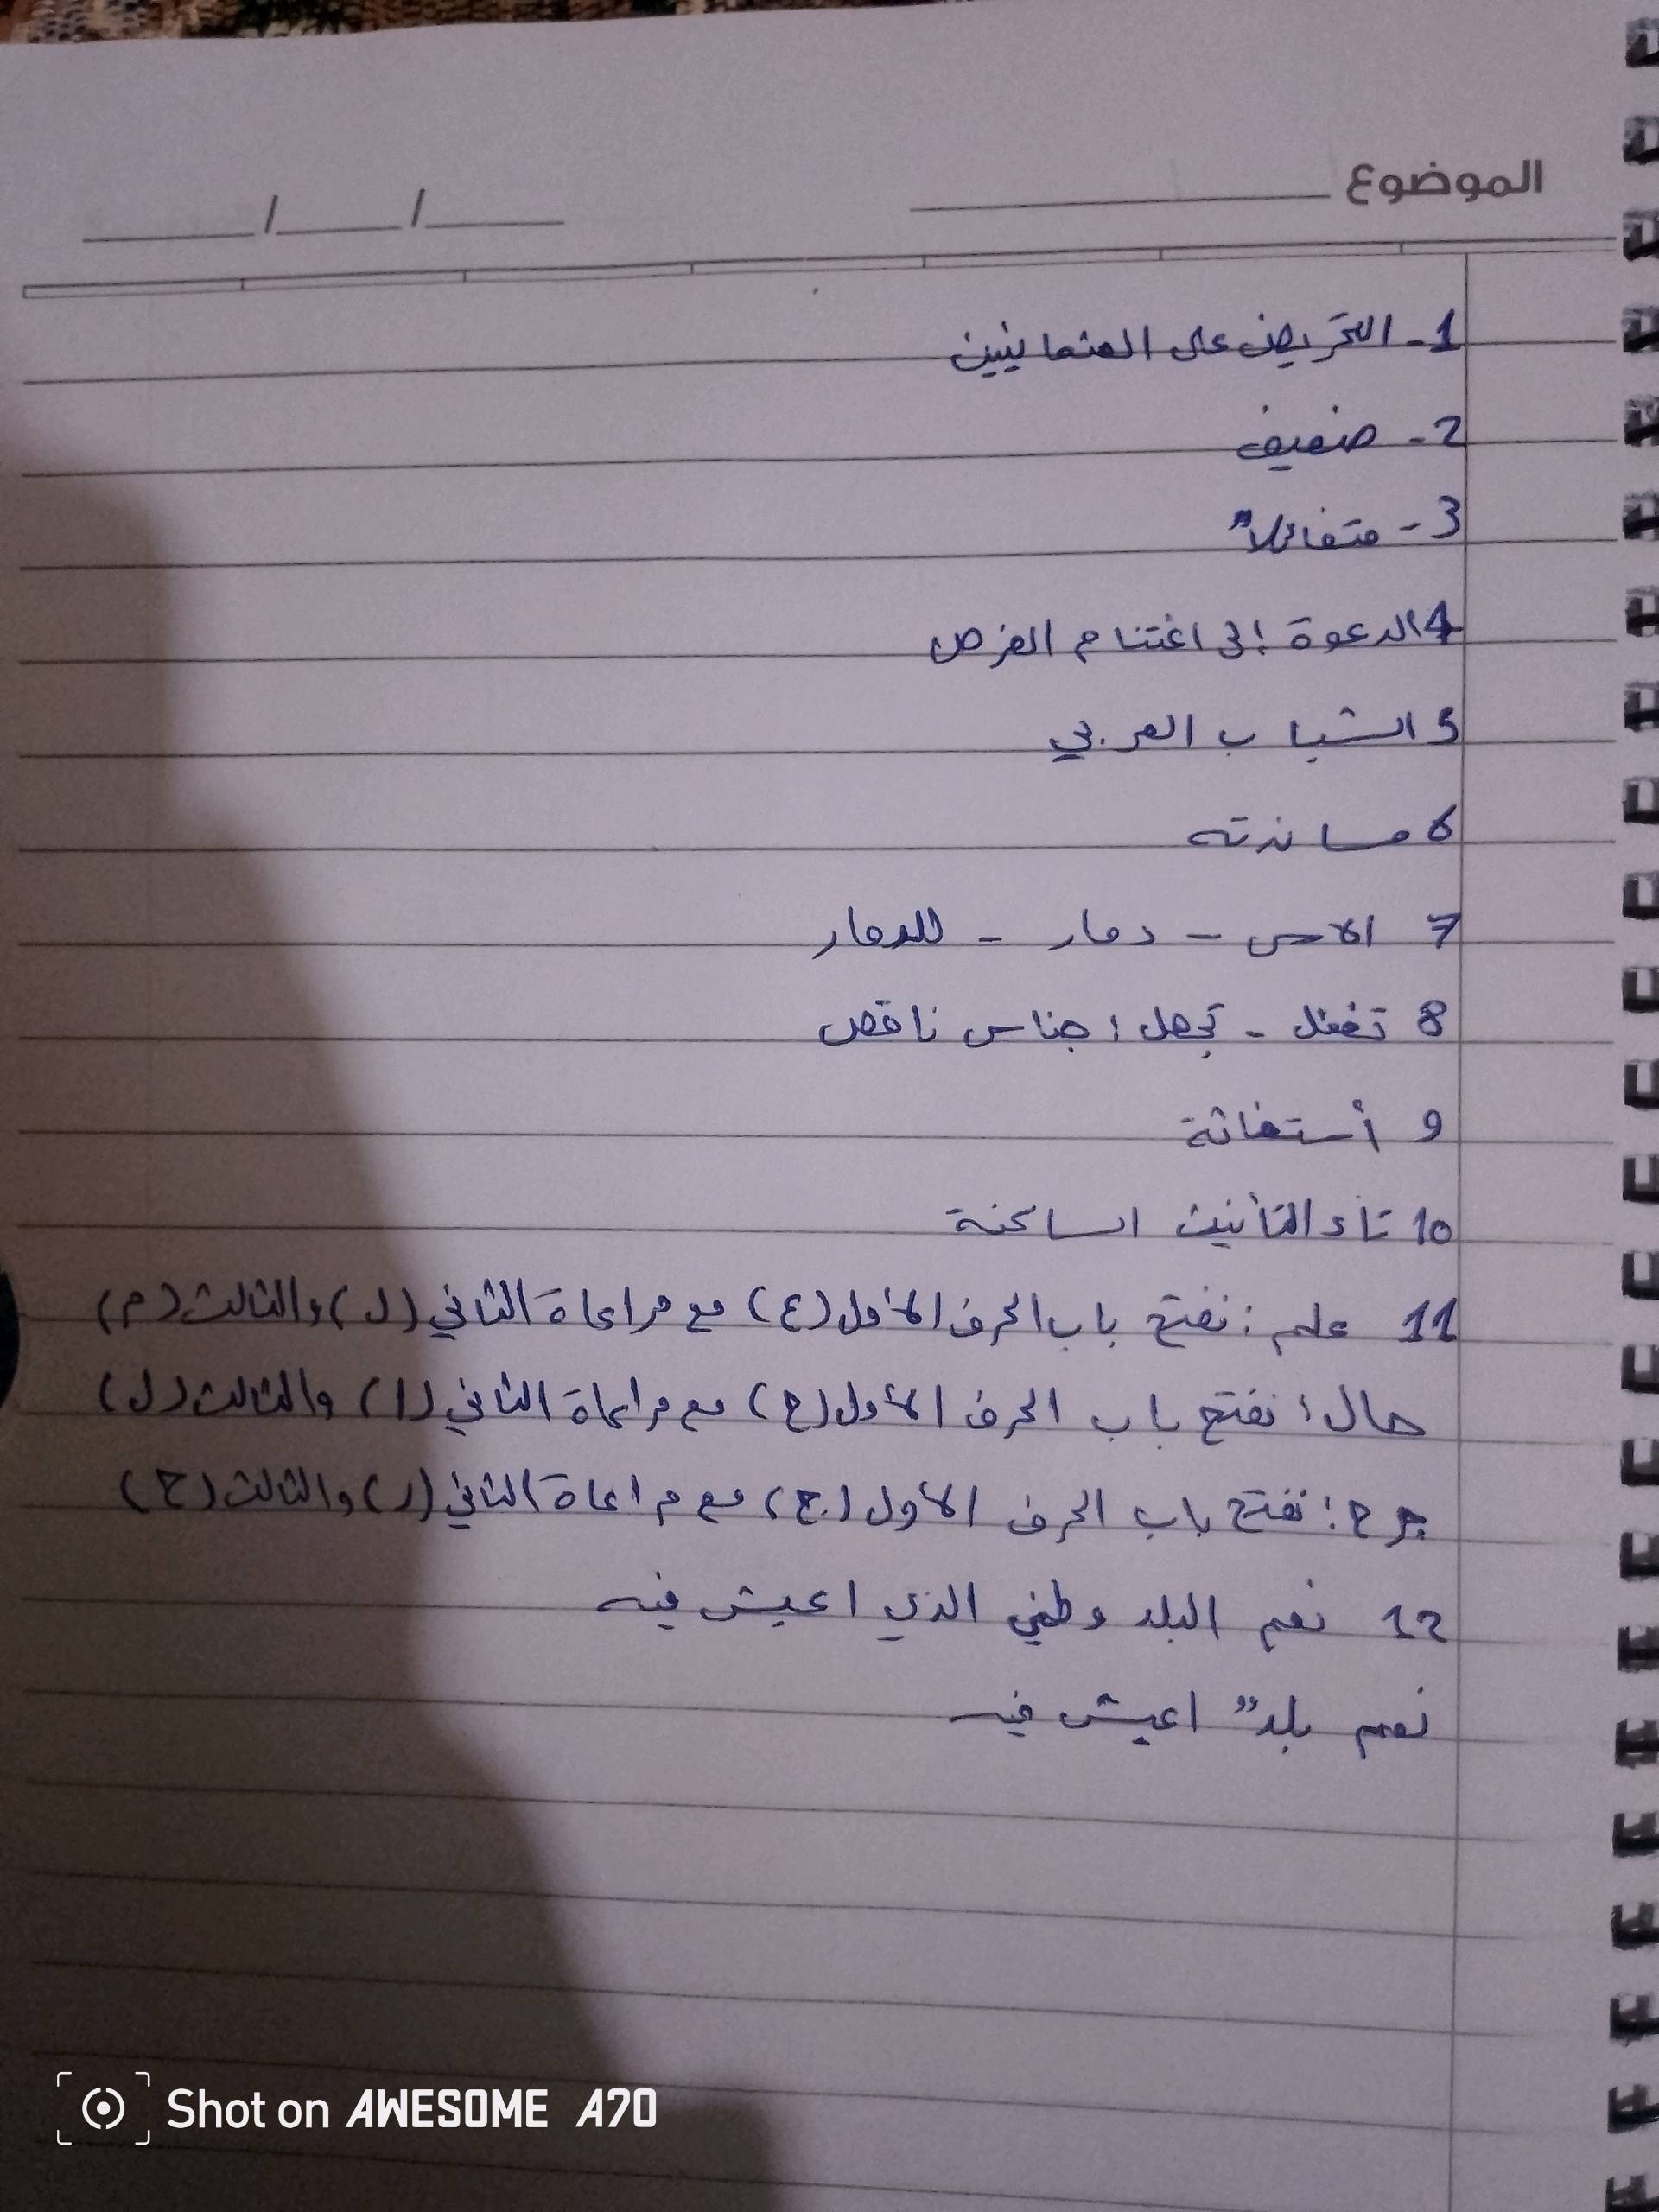 الموضوع
/ /
1- التحريض على العثمانيين
2- ضعيف
3- متفائلاً
4 الدعوة إلى اغتنام الفرص
5 الشباب العربي
6 مساندته
7 الاسى - دمار - للدمار
8 تغفل - تجهل : جناس ناقص
9 أستغاثة
10 تاء التأنيث الساكنة
11 علم : نفتح باب الحرف الأول (ع) مع مراعاة الثاني (ل) والثالث (م)
حال : نفتح باب الحرف الأول (ح) مع مراعاة الثاني (ا) والثالث (ل)
جرح : نفتح باب الحرف الأول (ج) مع مراعاة الثاني (ر) والثالث (ح)
12 نعم البلد وطني الذي اعيش فيه
نعم بلدً اعيش فيه
Shot on AWESOME A70